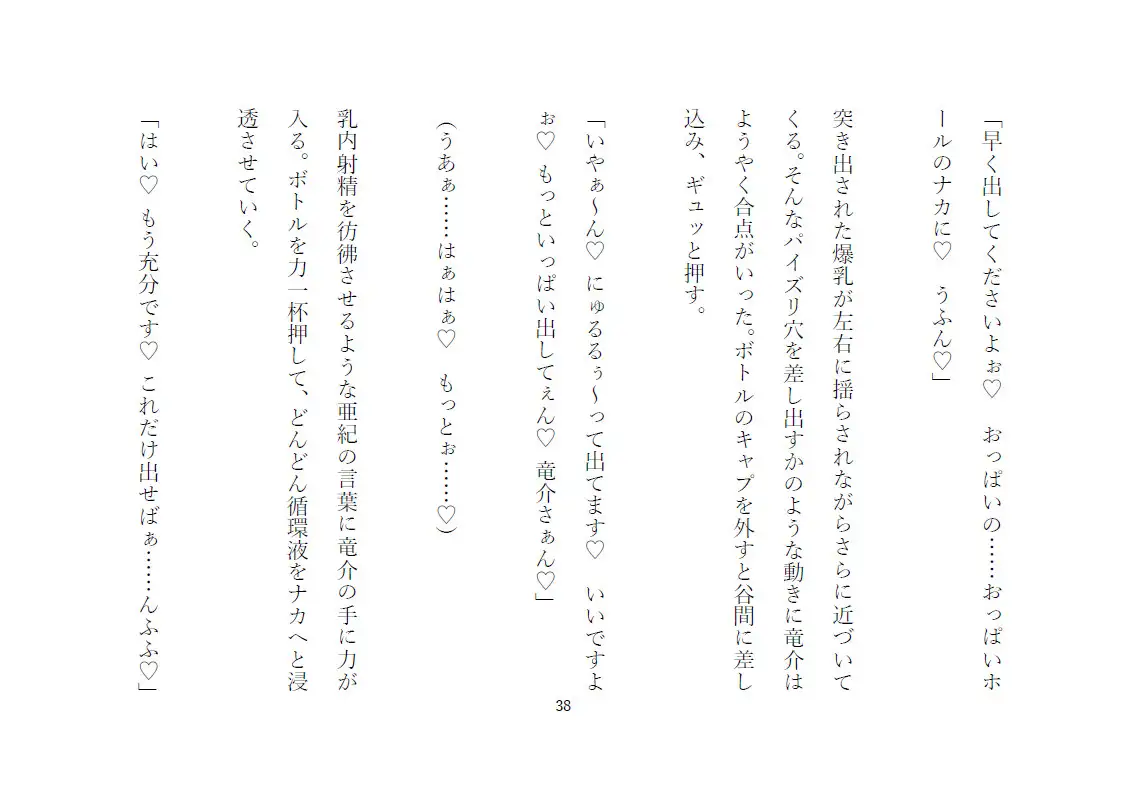 「早く出してくださいよぉ♡　おっぱいの……おっぱいホ
ールのナカに♡　うふん♡」
突き出された爆乳が左右に揺らされながらさらに近づいて
くる。そんなパイズリ穴を差し出すかのような動きに竜介は
ようやく合点がいった。ボトルのキャップを外すと谷間に差し
込み、ギュッと押す。
「いやぁ～ん♡ にゅるるぅ～って出てます♡　いいですよ
ぉ♡ もっといっぱい出してぇん♡ 竜介さぁん♡」
(うあぁ……はぁはぁ♡　もっとぉ……♡)
乳内射精を彷彿させるような亜紀の言葉に竜介の手に力が
入る。ボトルを力一杯押して、どんどん循環液をナカへと浸
透させていく。
「はい♡ もう充分です♡ これだけ出せばぁ……んふふ♡」
38